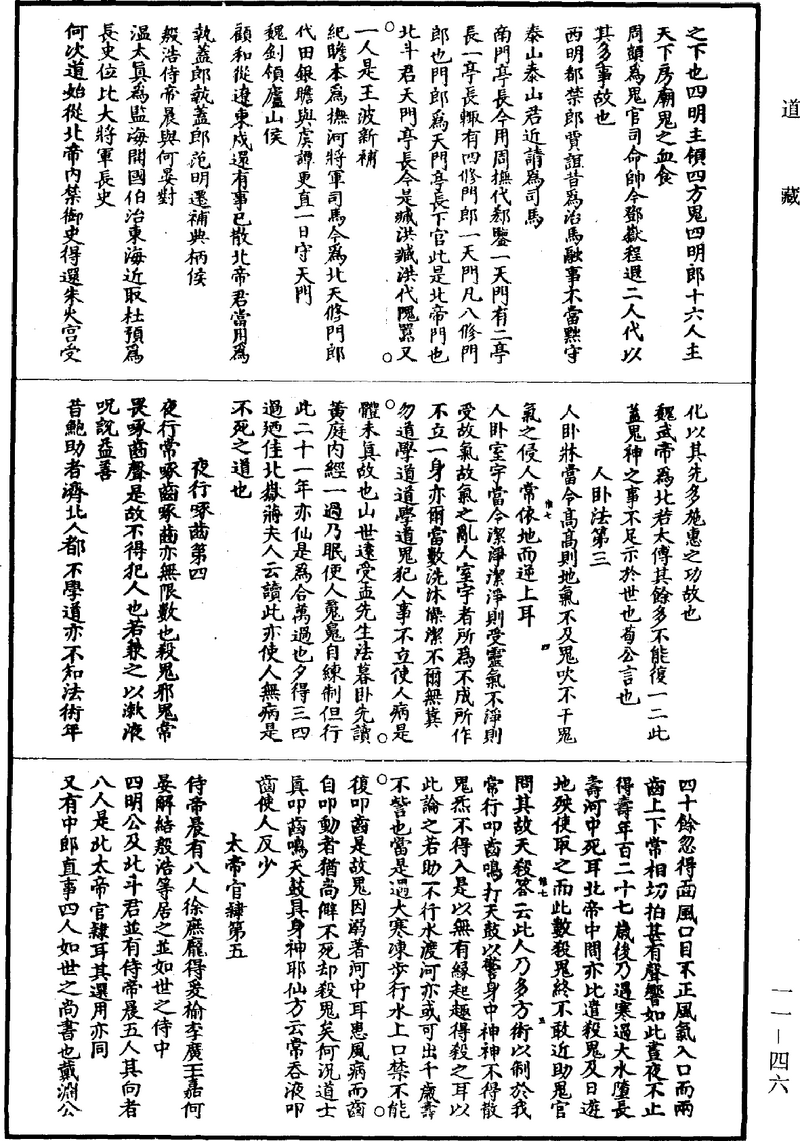 道藏
之下也四明主領四方鬼四明郎十六人主
天下房廟鬼之血食
周顗為鬼官司命帥今鄧嶽程遐二人代以
其多事故也
西明都禁郎賈誼昔為治馬融事不當黜守
泰山泰山君近請為司馬
南門亭長今用周撫代郗鑒一天門有二亭
長一亭長輒有四修門郎一天門凡八修門
郎也門郎為天門亭長下官此是北帝門也
北斗君天門亭長今是臧洪臧洪代隗囂又
一人是王波新補
紀瞻本為撫河將軍司馬今為北天修門郎
代田銀瞻與虞譚更直一日守天門
魏釗領廬山侯
顧和從遼東戍還有事已散北帝君當用為
執蓋郎執蓋郎范明還補典柄侯
殷浩侍帝晨與何晏對
溫太真為監海開國伯治東海近取杜預為
長史位比大將軍長史
何次道始從北帝內禁御史得還朱火宮受
化以其先多施惠之功故也
魏武帝為北若太傅其餘多不能復一二此
蓋鬼神之事不足示於世也荀公言也
人臥法第三
人臥牀當令高高則地氣不及鬼吹不干鬼
氣之侵人常依地而逆上耳
人臥室宇當令潔淨潔淨則受靈氣不淨則
受故氣故氣之亂人室宇者所為不成所作
不立一身亦爾當數洗沐燥潔不爾無冀
勿道學道道學道鬼犯人事不立使人病是
體未真故也山世遠受孟先生法暮臥先讀
黃庭內經一過乃眠使人魂魄自練制但行
此二十一年亦仙是為合萬過也夕得三四
過迺佳北嶽蔣夫人云讀此亦使人無病是
不死之道也
夜行啄齒第四
夜行常啄齒啄齒亦無限數也殺鬼邪鬼常
畏啄齒聲是故不得犯人也若兼之以漱液
呪說益善
昔鮑助者濟北人都不學道亦不知法術年
四十餘忽得面風口目不正風氣入口而兩
齒上下常相切拍甚有聲響如此晝夜不止
得壽年百二十七歲後乃遇寒過大水墮長
壽河中死耳北帝中間亦比遣殺鬼及日遊
地殃使取之而此數殺鬼終不敢近助鬼官
問其故天殺答云此人乃多方術以制於我
常行叩齒鳴打天鼓以警身中神神不得散
鬼炁不得入是以無有緣起趣得殺之耳以
此論之若助不行水渡河亦或可出千歲壽
不訾也當是遇大寒凍步行水上口禁不能
復叩齒是故鬼因溺著河中耳患風病而齒
自叩動者猶尚辟不死却殺鬼矣何況道士
真叩齒鳴天鼓具身神耶仙方云常吞液叩
齒使人反少
太帝官隸第五
侍帝晨有八人徐庶龐得爰榆李廣王嘉何
晏解結殷浩等居之並如世之侍中
四明公及北斗君並有侍帝晨五人其向者
八人是北太帝官隸耳其選用亦同
又有中郎直事四人如世之尚書也戴淵公
一一－四六